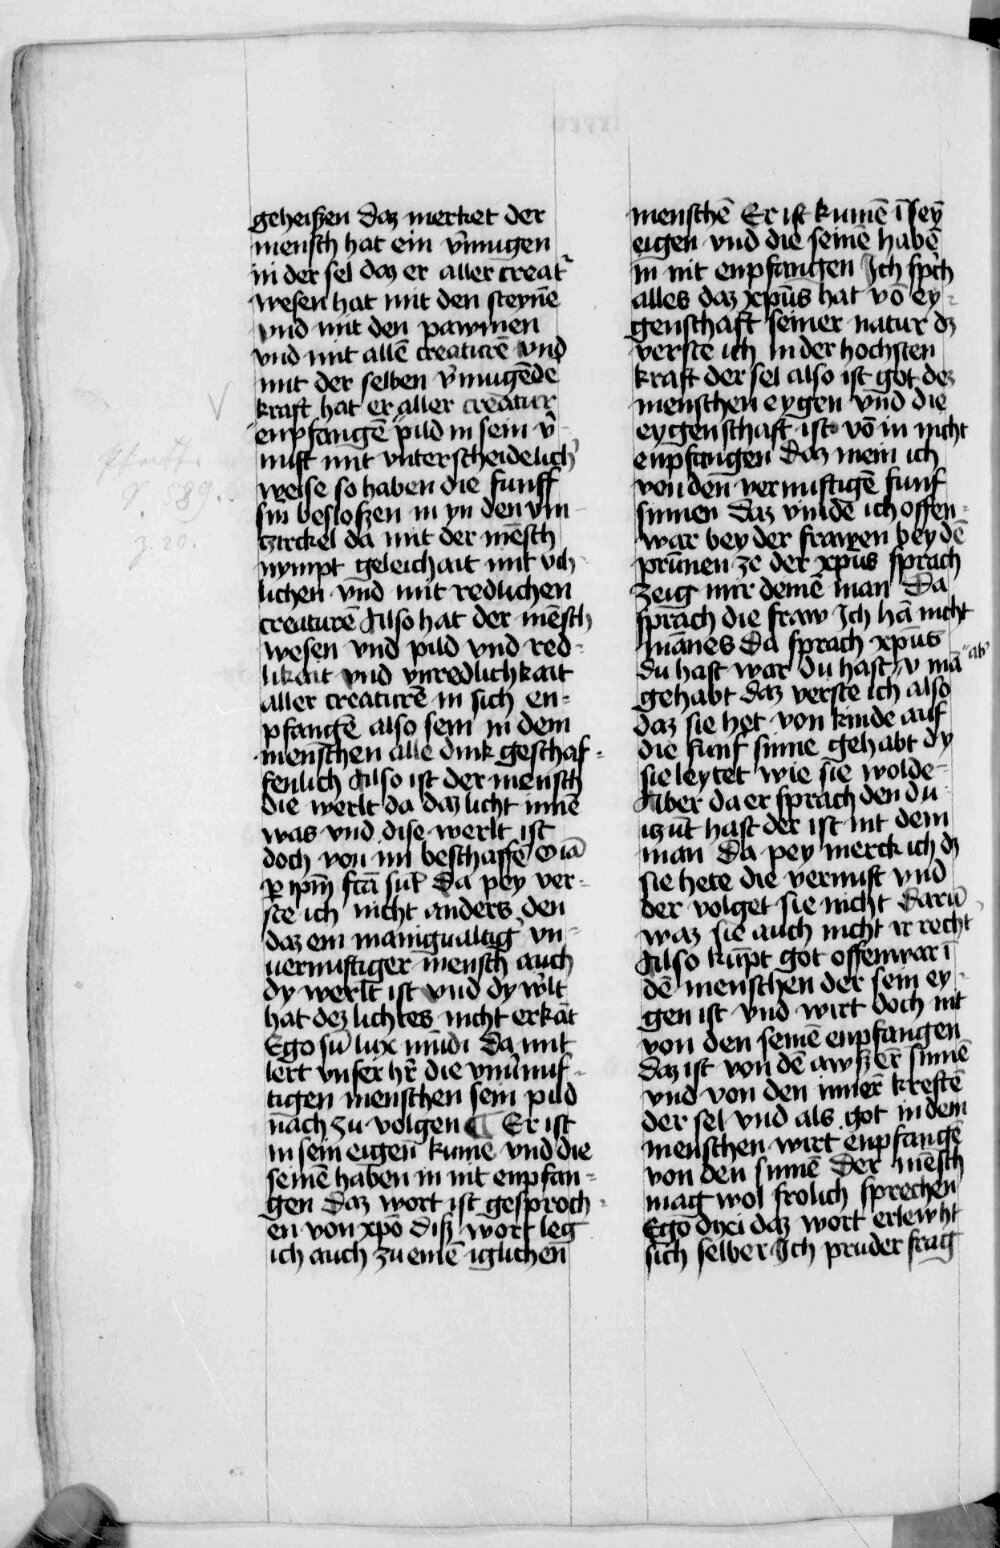 geheißen Daz merket der
mensch hat ein v̉mugen
in der sel daz er aller creat̉
wesen hat mit den steyne̅
vnd mit den pawmen
vnd mit alle̅ creature̅ vnd
mit der selben v̉muge̅de
kraft hat er aller creatur
enpfange̅ pild in sein v̉-
nuft mit vnterscheidelich̉
weise so haben die funff
sin besloszen in yn den vm-
tzirckel da mit der me̅sch
nympt geleichait mit vih-
lichen vnd mit redlichen
creature̅ Also hat der me̅sch
wesen vnd pild vnd red-
likait vnd vnredlichkait
aller creature̅ in sich en-
pfange̅ also sein in dem
menschen alle dink geschaf-
fenlich Also ist der mensch
die werlt da daz licht inne̅
was vnd dise werlt ist
doch von im beschaffe̅ Om̅ia
ꝑ ip̅m fc̅a su̅t Da pey ver-
ste ich nicht anders den
daz ein manigualtig vn-
uernuftiger mensch auch
dy werlt ist vnd dy w̉lt
hat dez lichtes nicht erka̅t
Ego su̅ lux mu̅di Da mit
lert vnser hr̅ die vnủnuf-
tigen menschen sein pild
nach zu volgen ¶ Er ist
in sein eigen kume̅ vnd die
seine̅ haben in nit enpfan-
gen Daz wort ist gesproch-
en von xp̅o Disz wort leg
ich auch zu eine̅ iglichen
mensche̅ Er ist kume̅ i̅ sey̅
eigen vnd die seine̅ habe̅
in nit enpfangen Ich sp̉ch
alles daz xp̅us hat vo̅ ey-
genschaft seiner natur dz
verste ich in der hochsten
kraft der sel also ist got dez
menschen eygen vnd die
eygenschaft ist vo̅ in nicht
enpfangen Daz mein ich
von den vernuftige̅ funf
sinnen Daz vinde̅ ich offen-
war bey der frawen bey de̅
prunnen ze der xp̅us sprach
Zeig mir deine̅ man Da
sprach die fraw Ich ha̅ nicht
mannes Da sprach xp̅us
du hast war du hast v ma̅ ab̉
gehabt daz verste ich also
daz sie het von kinde auf
die funf sinne gehabt dy
sie leytet wie sie wolde-
Aber da er sprach den du
itzu̅t hast der ist nit dein
man Da pey merck ich dz
sie hete die vernuft vnd
der volget sie nicht Daru̅
waz sie auch nicht ir recht
Also kumpt got offenwar i̅
de̅ menschen der sein ey-
gen ist vnd wirt doch nit
von den seine̅ enpfangen
daz ist von de̅ awszer̅ sinne̅
vnd von den inner̅ krefte̅
der sel vnd als got in dem
menschen wirt enpfange̅
von den sinne̅ Der me̅sch
mag wol frolich sprechen
Ego dixi daz wort erlewht
sich selber Ich pruder frag